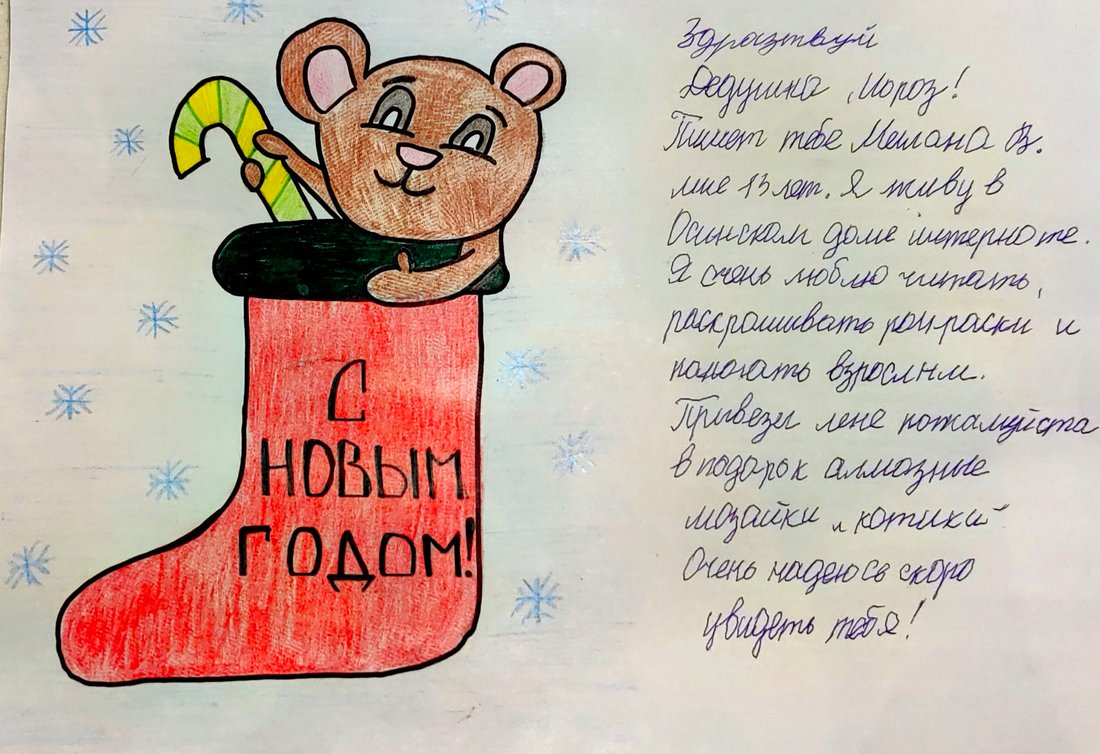 С
НОВЫМ
ГОДОМ!
Здразтвуй
Дедушка Мороз!
Пишет тебе Милана В.
мне 13 лет. Я живу в
Осинском доме интернате.
Я очень люблю читать,
раскрашивать раıскраски и
помогать взрослым.
Привези мене пожалуйста
в подарок алмазные
мозайки и котики
Очень надеюсь скоро
увидеть тебя!